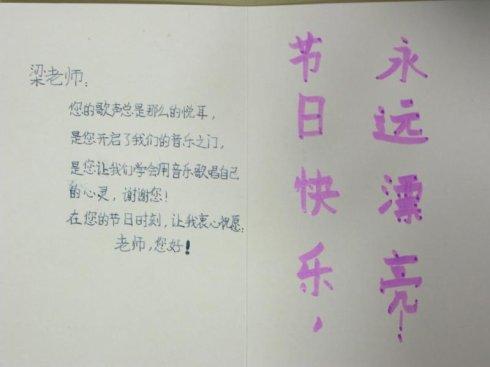 梁老师:
您的歌声总是那么的悦耳,
是您开启了我们的音乐之门,
是您让我们学会用音乐歌唱自己
的心灵,谢谢您!
在您的节日时刻,让我衷心祝愿:
老师,您好!
节日快乐,
永远漂亮!